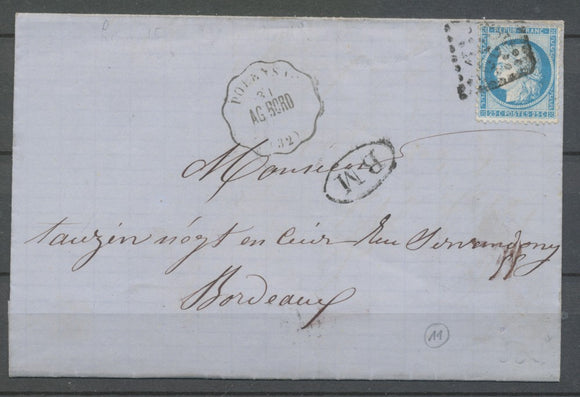 REPUB. FRANC.
25 C. POSTES 25 C.
AG. BORD
B.M
Monsieur
tauzin négt en cuir Rue Servandony
Bordeaux
11